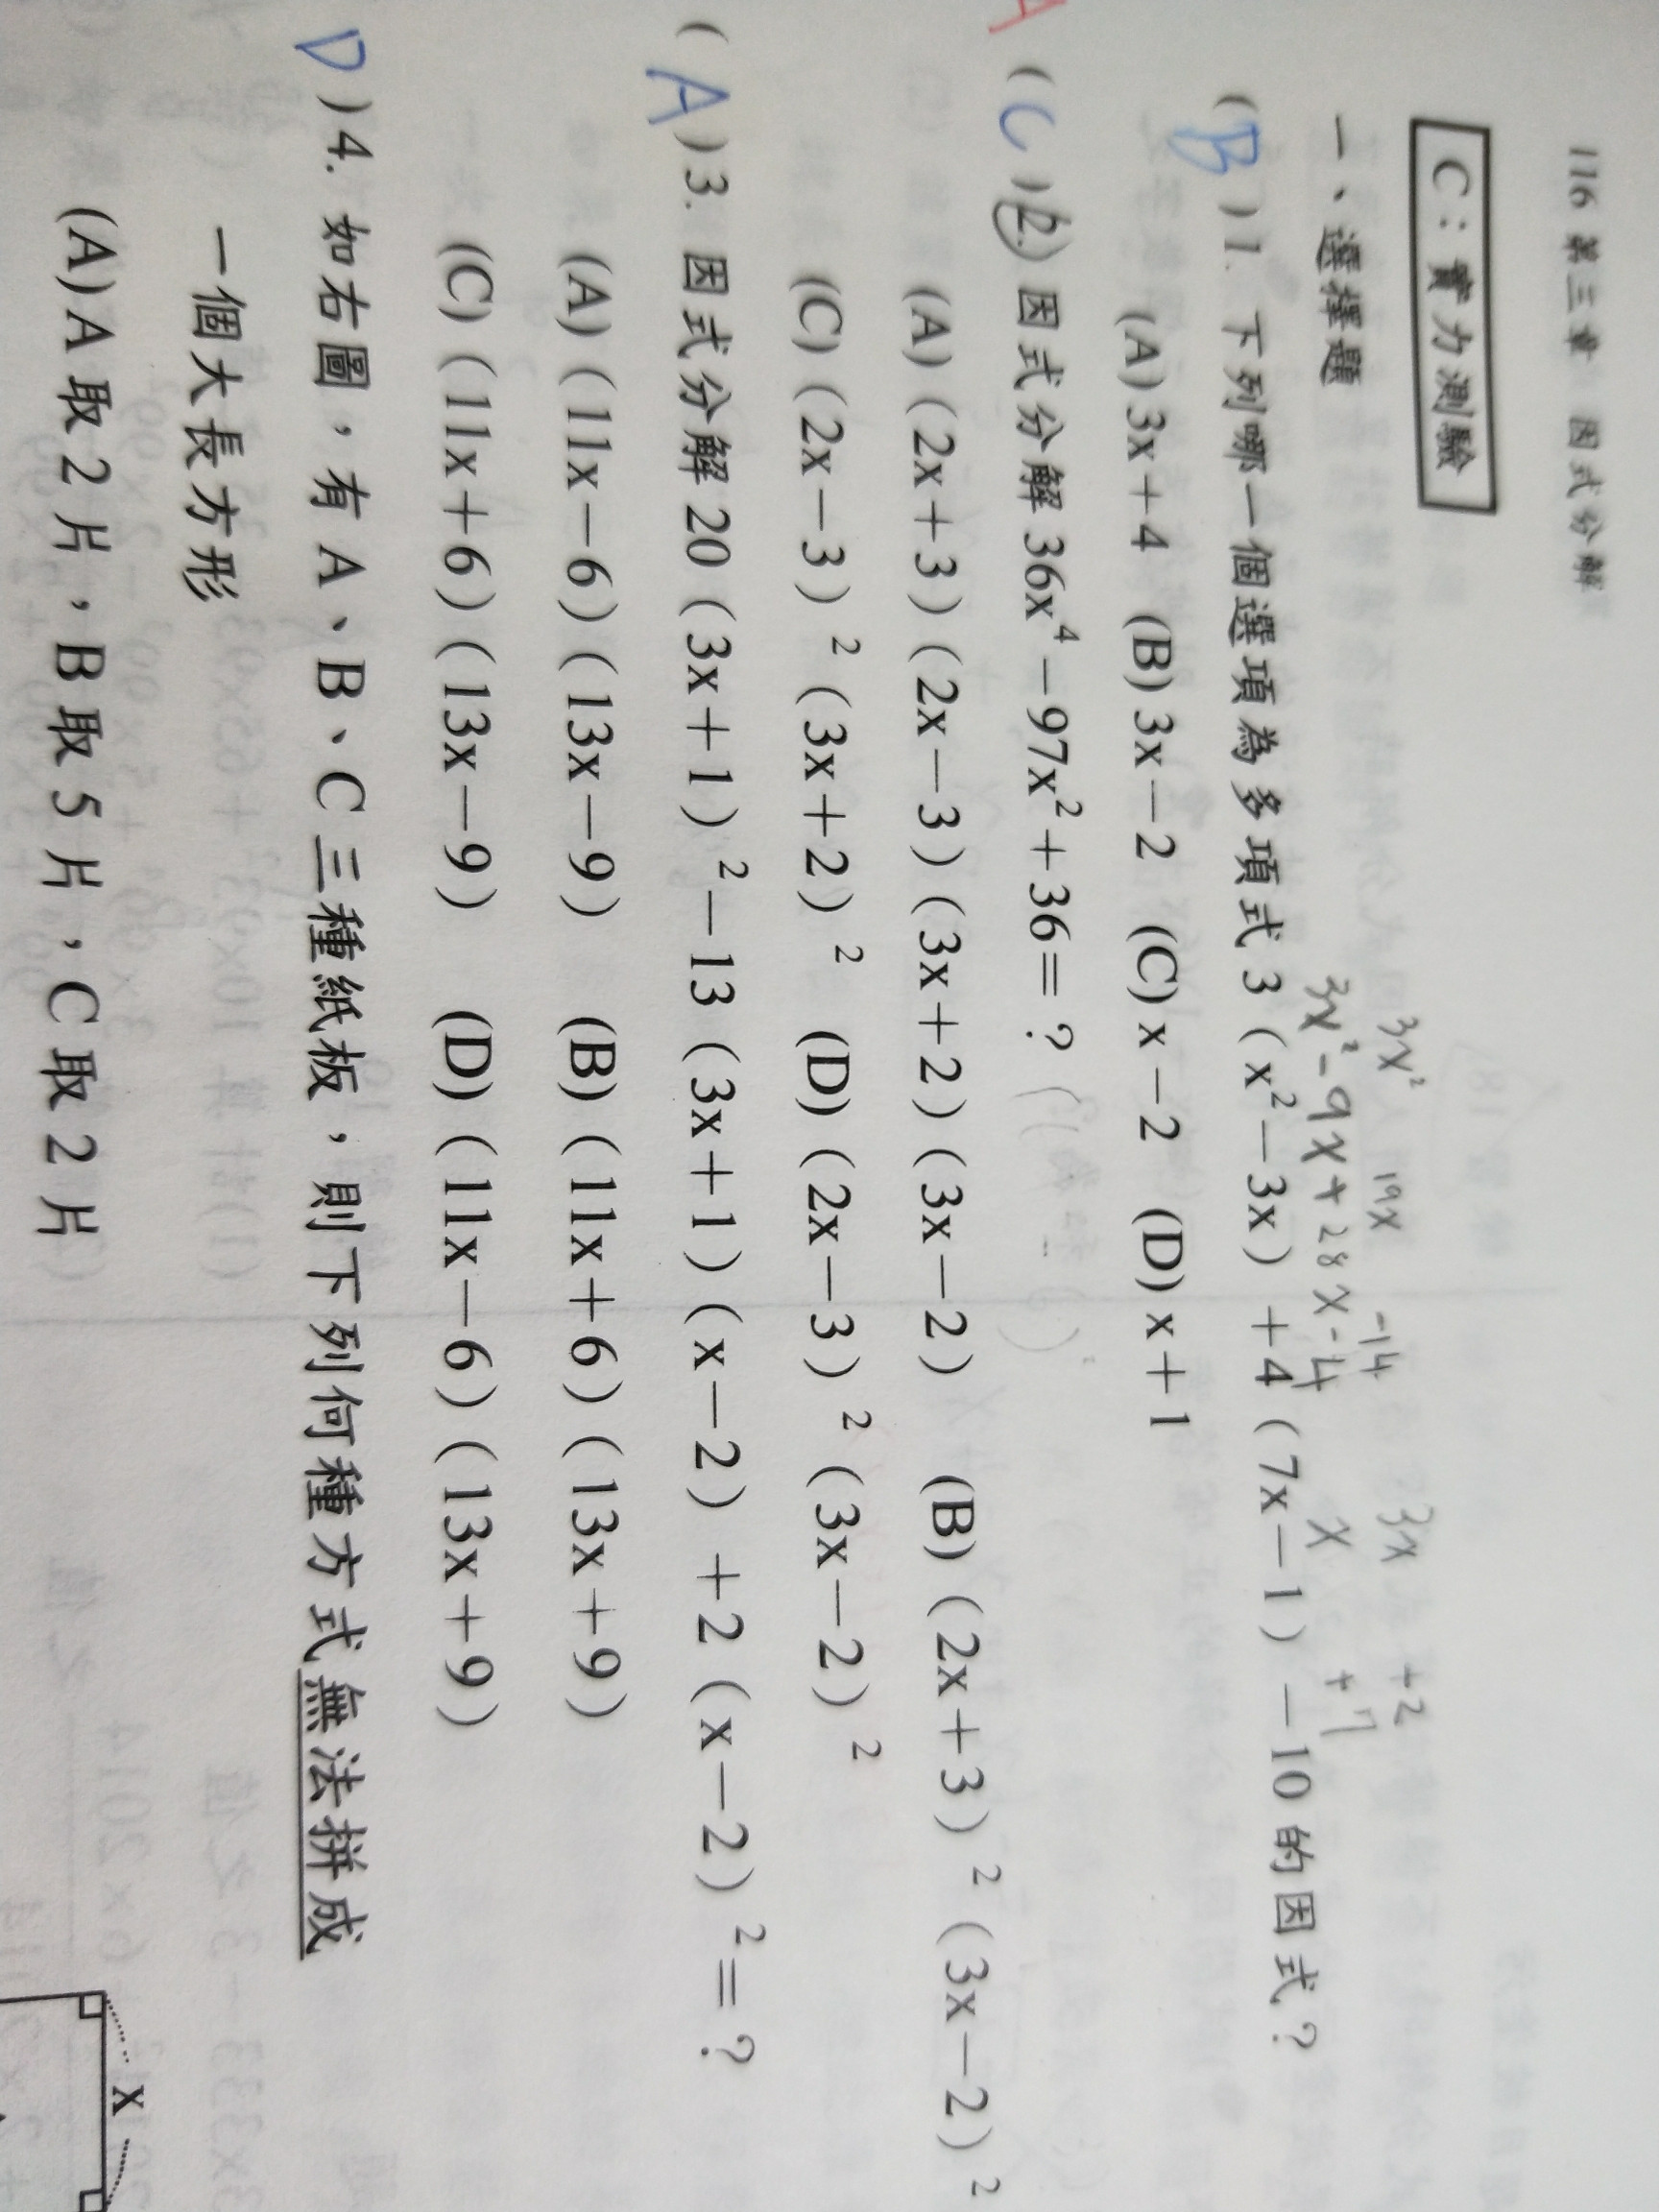 116 第三章 因式分解
C：實力測驗
一、選擇題
3x² 19x -14 3x +2
3x²-9x+28x-4 x +7
( B )1. 下列哪一個選項為多項式 3（x²－3x）＋4（7x－1）－10 的因式？
(A) 3x＋4 (B) 3x－2 (C) x－2 (D) x＋1
A ( C )2. 因式分解 36x⁴－97x²＋36＝？
(A)（2x＋3）（2x－3）（3x＋2）（3x－2） (B)（2x＋3）²（3x－2）²
(C)（2x－3）²（3x＋2）² (D)（2x－3）²（3x－2）²
( A )3. 因式分解 20（3x＋1）²－13（3x＋1）（x－2）＋2（x－2）²＝？
(A)（11x－6）（13x－9） (B)（11x＋6）（13x＋9）
(C)（11x＋6）（13x－9） (D)（11x－6）（13x＋9）
D )4. 如右圖，有 A、B、C 三種紙板，則下列何種方式無法拼成
一個大長方形
(A) A 取 2 片，B 取 5 片，C 取 2 片
x